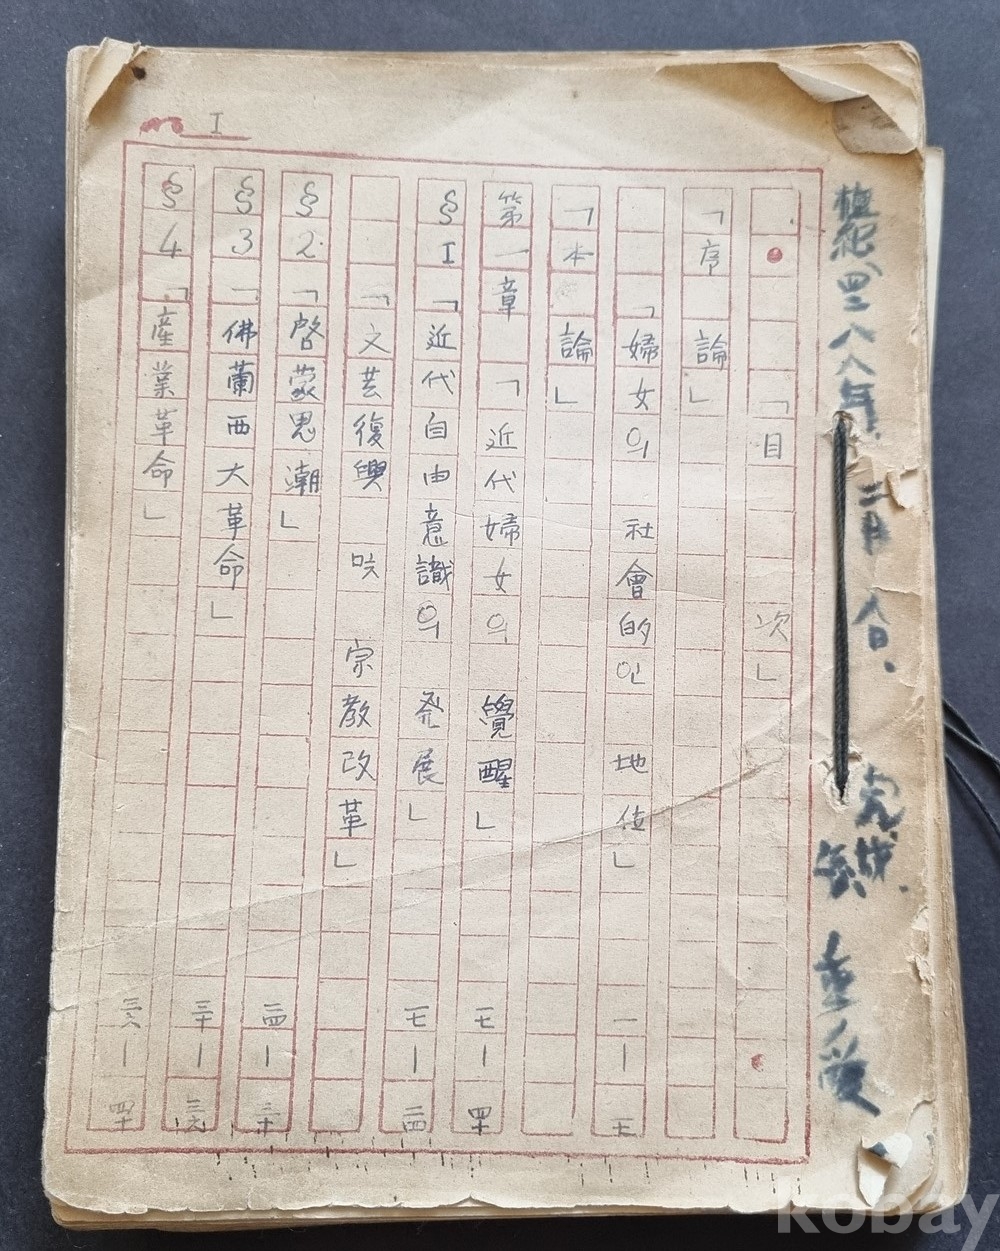 I
檀紀四二八八年 二月 合.
「目 次」
「序 論」
「婦女의 社會的인 地位」 一—十七
「本 論」
第一章 「近代婦女의 覺醒」 一七—四十
§I 「近代自由意識의 発展」 一七—二四
「文芸復興 宗教改革」
§2 「啓蒙思潮」 二四—三十
§3 「佛蘭西大革命」 三十—三六
§4 「産業革命」 三六—四十
kobay